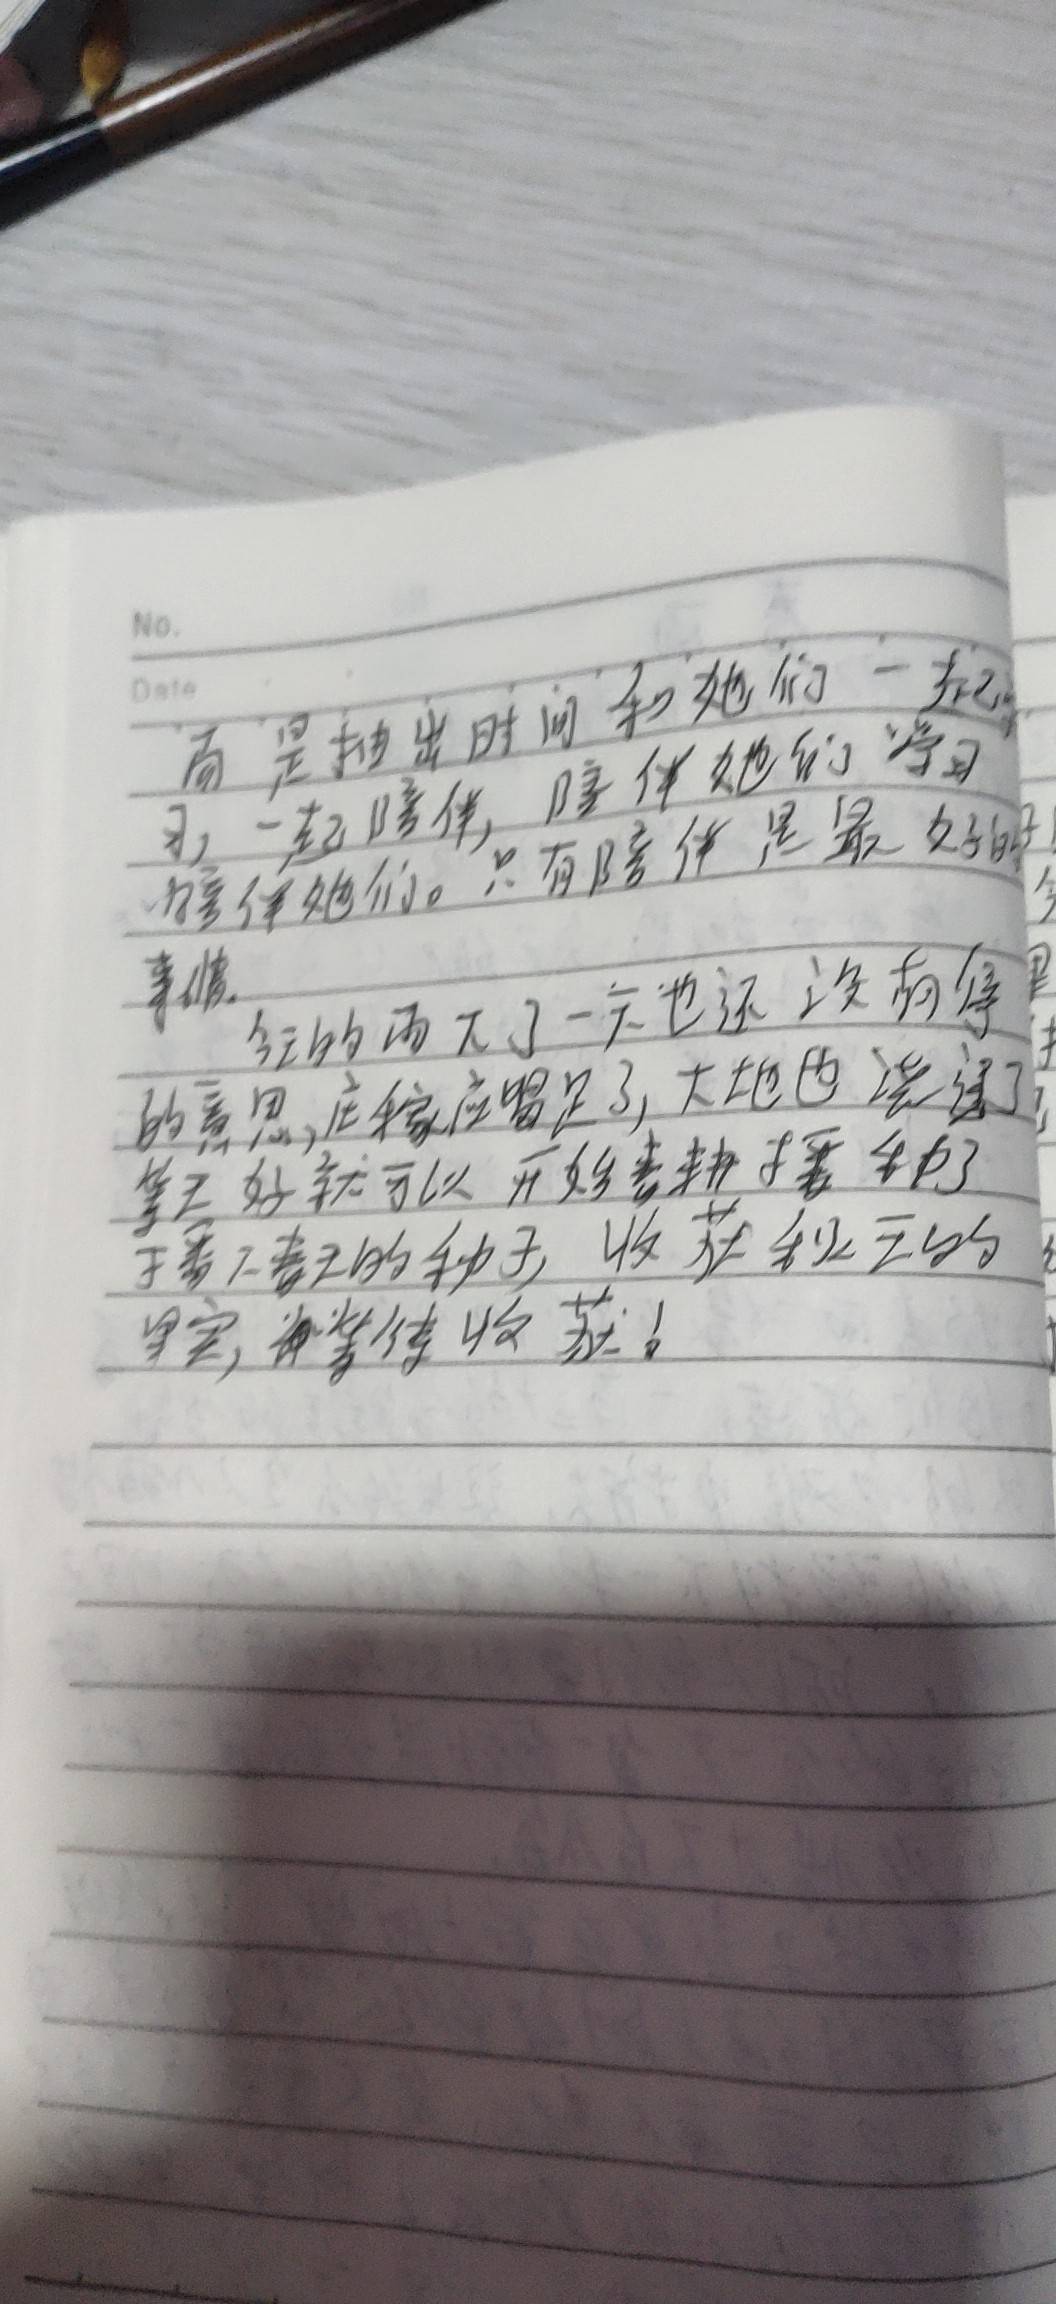 No.
Date
而是抽出时间和她们一起学
习,一起陪伴,陪伴她们学习
陪伴她们。只有陪伴是最好的
事情.
今天的雨下了一天也还没有停
的意思,庄稼应喝足了,大地也浇透了
等天好就可以开始春耕播种了
播下春天的种子,收获秋天的
果实,等待收获!